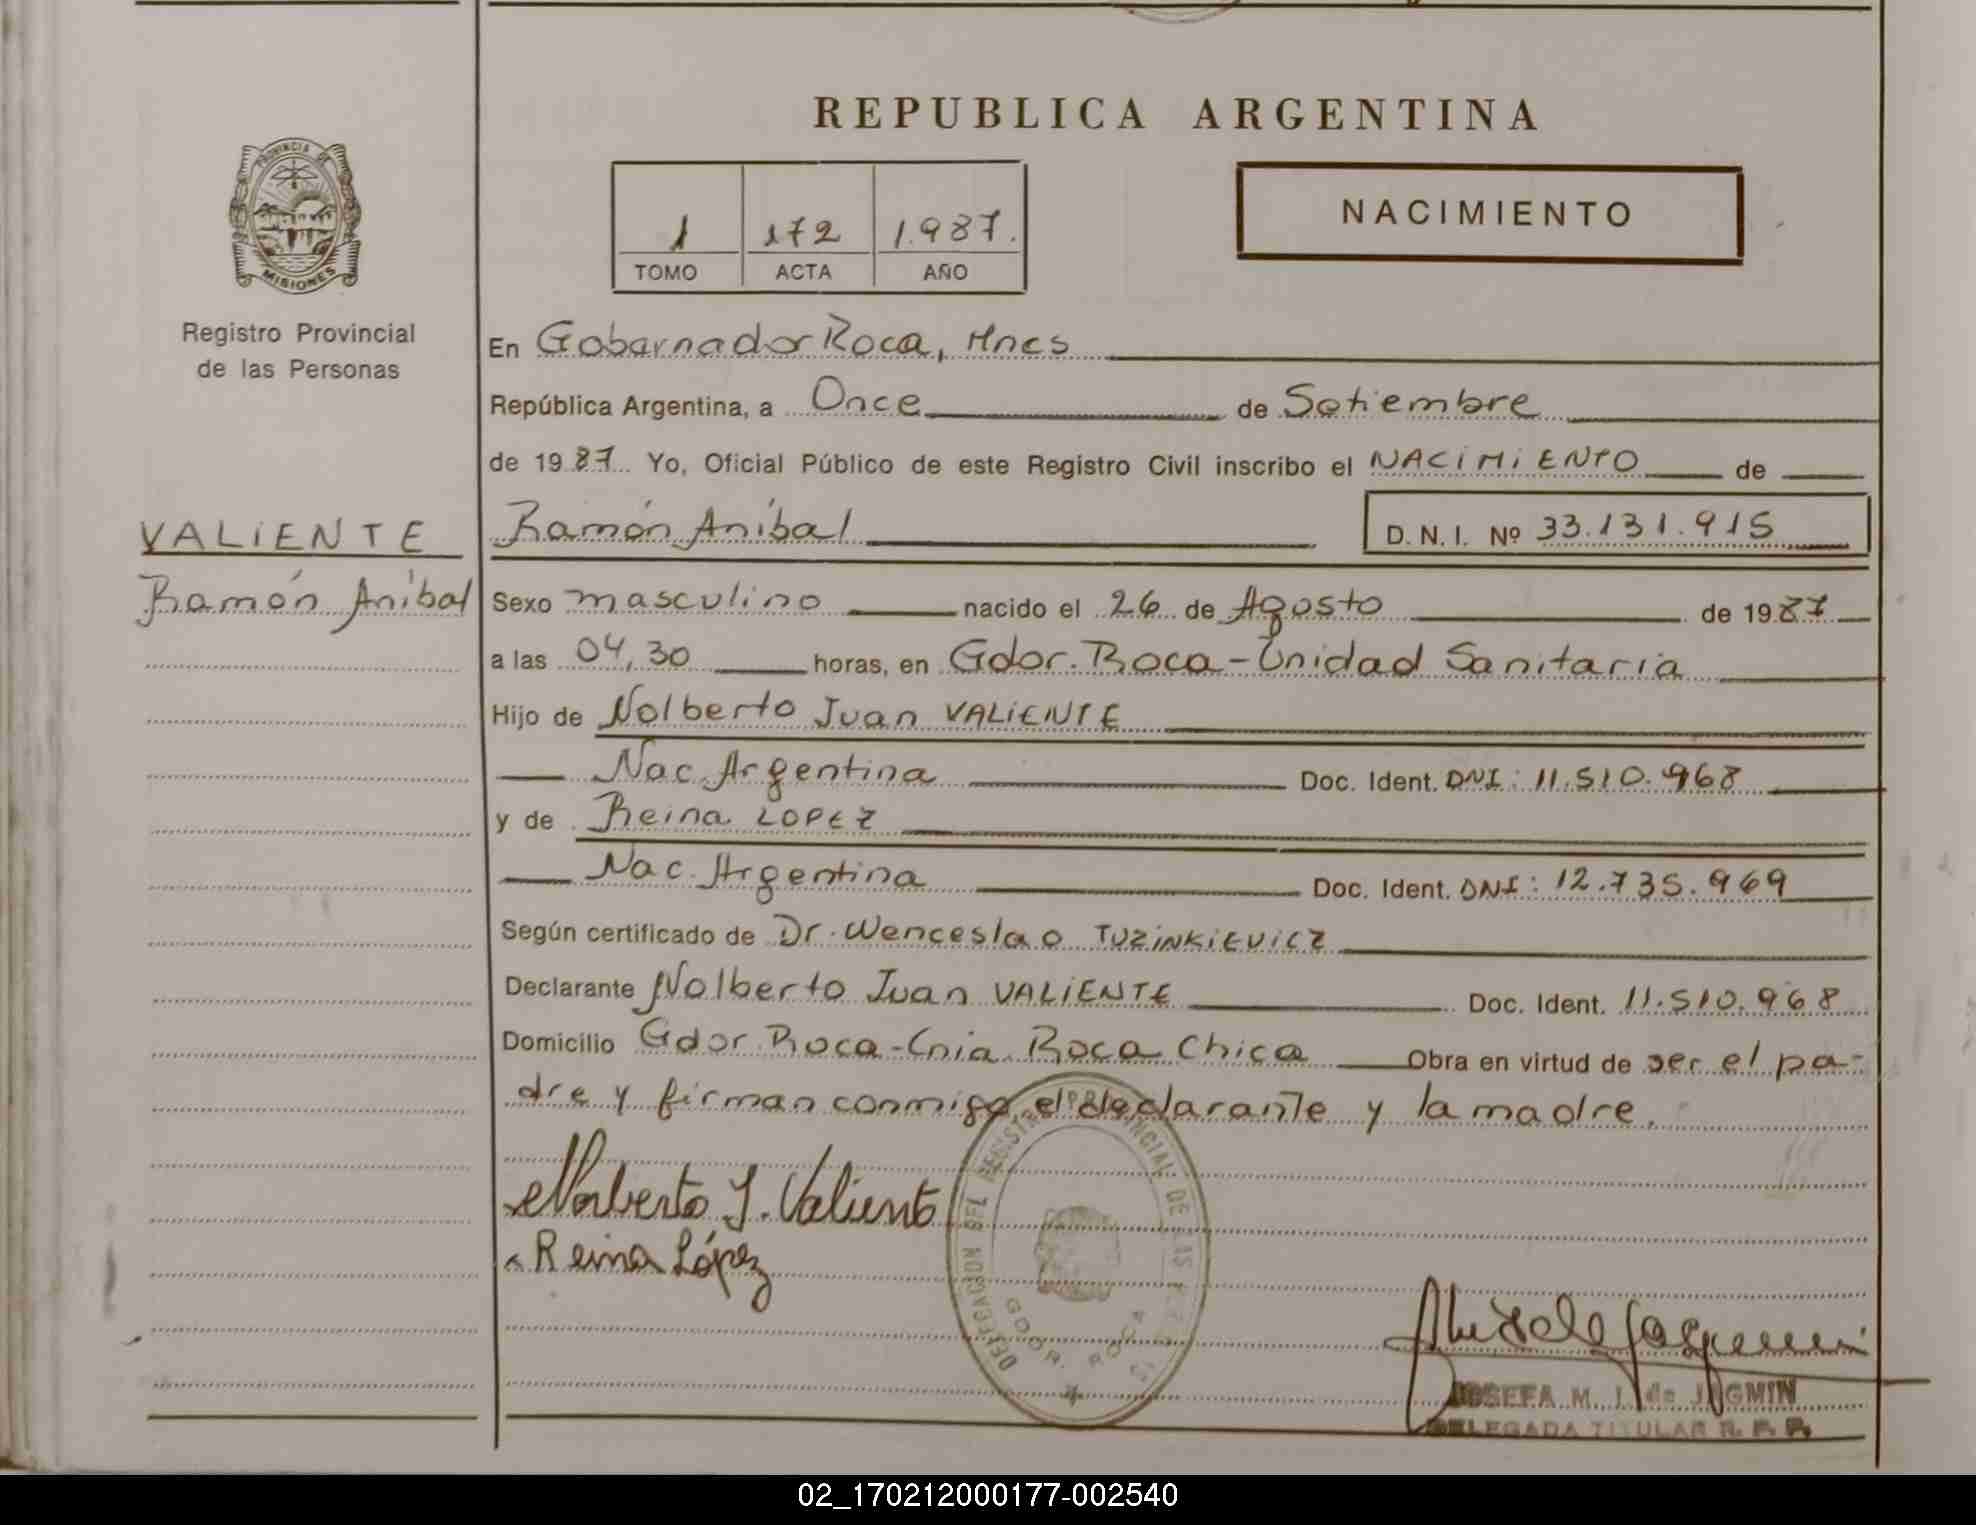 REPUBLICA ARGENTINA
PROVINCIA DE
MISIONES
Registro Provincial
de las Personas
1 172 1.987.
TOMO ACTA AÑO
NACIMIENTO
En Gobernador Roca, Mnes
República Argentina, a Once de Setiembre
de 1987 Yo, Oficial Público de este Registro Civil inscribo el NACIMIENTO de
VALIENTE
Ramón Aníbal
Ramón Aníbal D.N.I. Nº 33.131.915
Sexo masculino nacido el 26 de Agosto de 1987
a las 04,30 horas, en Gdor. Roca-Unidad Sanitaria
Hijo de Nolberto Juan VALIENTE
Nac. Argentina Doc. Ident. DNI: 11.510.968
y de Reina LOPEZ
Nac. Argentina Doc. Ident. DNI: 12.735.969
Según certificado de Dr. Wenceslao TUZINKIEVICZ
Declarante Nolberto Juan VALIENTE Doc. Ident. 11.510.968
Domicilio Gdor. Roca-Cnia. Roca Chica Obra en virtud de ser el pa-
dre y firman conmigo, el declarante y la madre.
Norberto J. Valiente
Reina López
DELEGACION DEL REGISTRO PROVINCIAL DE LAS
GDOR. ROCA
JOSEFA M. J. de JAGMIN
DELEGADA TITULAR R. P. P.
02_170212000177-002540